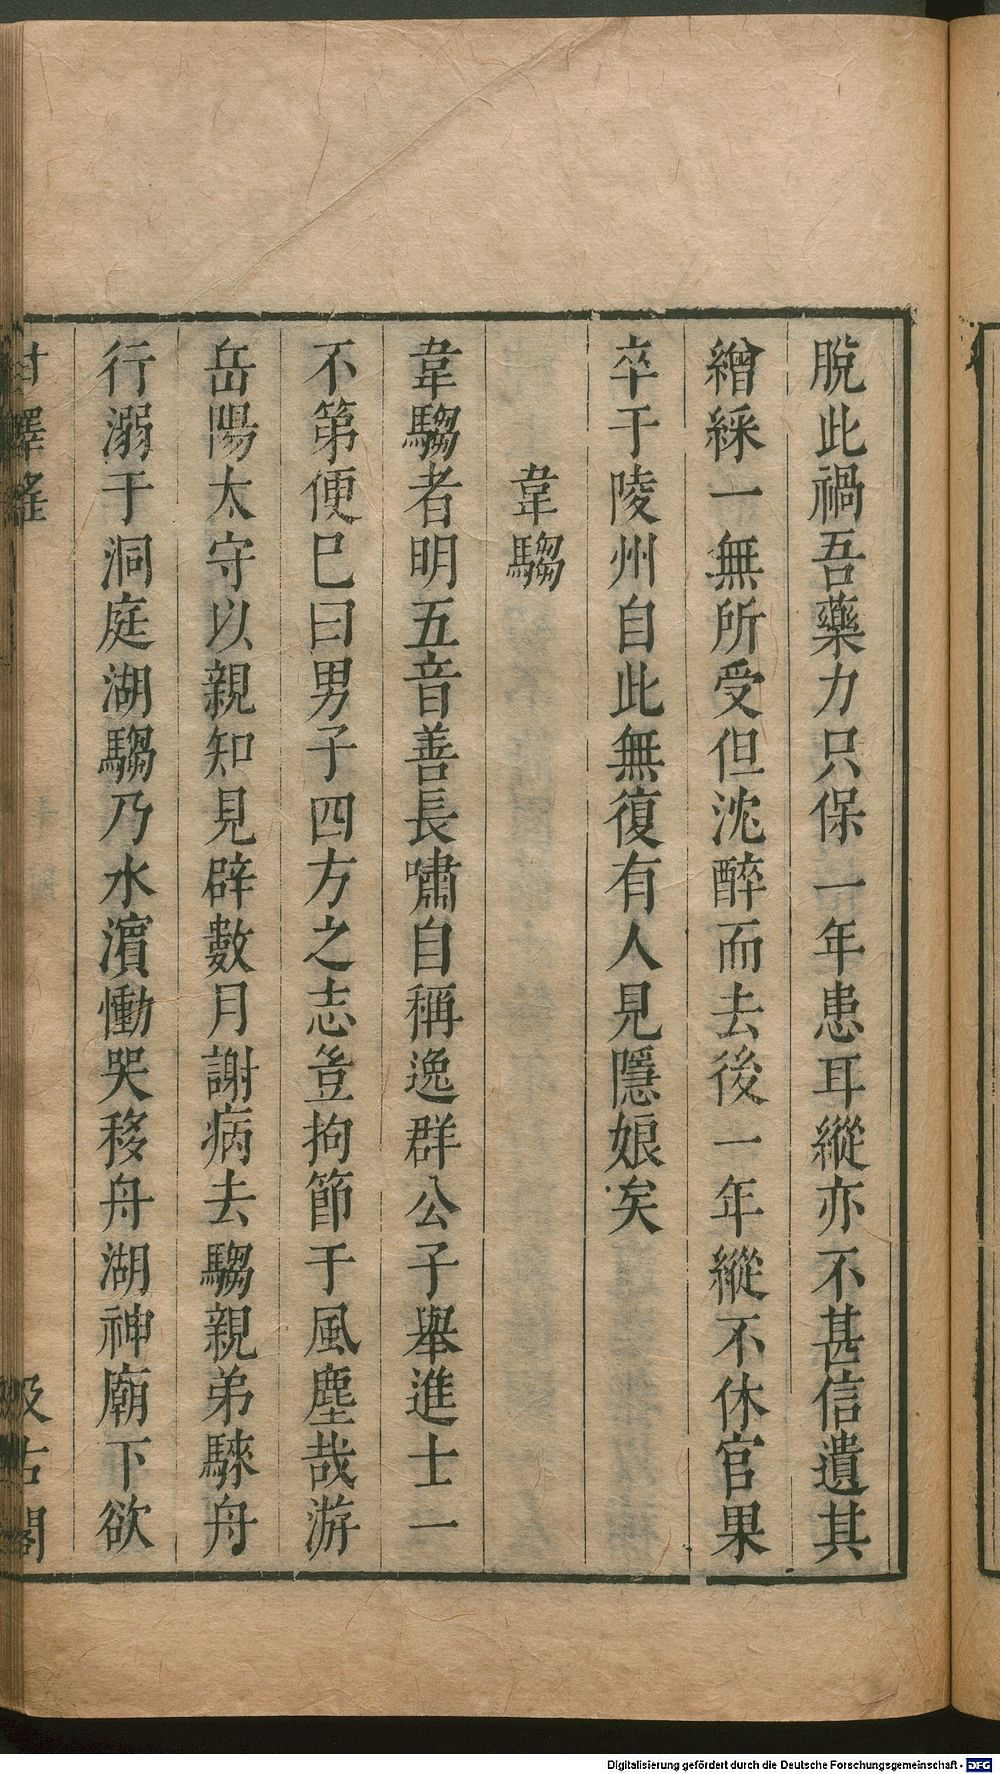 脫此禍吾藥力只保一年患耳縱亦不甚信遺其
繒綵一無所受但沈醉而去後一年縱不休官果
卒于陵州自此無復有人見隱娘矣
韋騶
韋騶者明五音善長嘯自稱逸群公子舉進士一
不第便巳曰男子四方之志豈拘節于風塵哉游
岳陽太守以親知見辟數月謝病去騶親弟騋舟
行溺于洞庭湖騶乃水濵慟哭移舟湖神廟下欲
甘澤謠
汲古閣
Digitalisierung gefördert durch die Deutsche Forschungsgemeinschaft - DFG